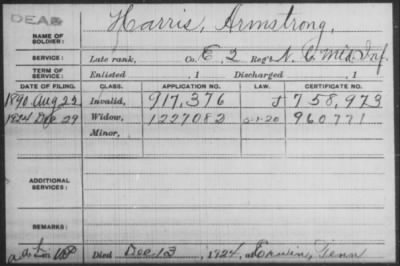 DEAD
NAME OF SOLDIER: Harris, Armstrong,
SERVICE: Late rank, Co. E, 2 Reg't N. C. Mtd. Inf.
TERM OF SERVICE: Enlisted , 1 Discharged , 1
DATE OF FILING. CLASS. APPLICATION NO. LAW. CERTIFICATE NO.
1890 Aug 22 Invalid, 917,376 J 758,979
1924 Dec 29 Widow, 1227082 5-1-20 960771
Minor,
ADDITIONAL SERVICES:
REMARKS:
Died Dec 13, 1924, at Erwin, Tenn